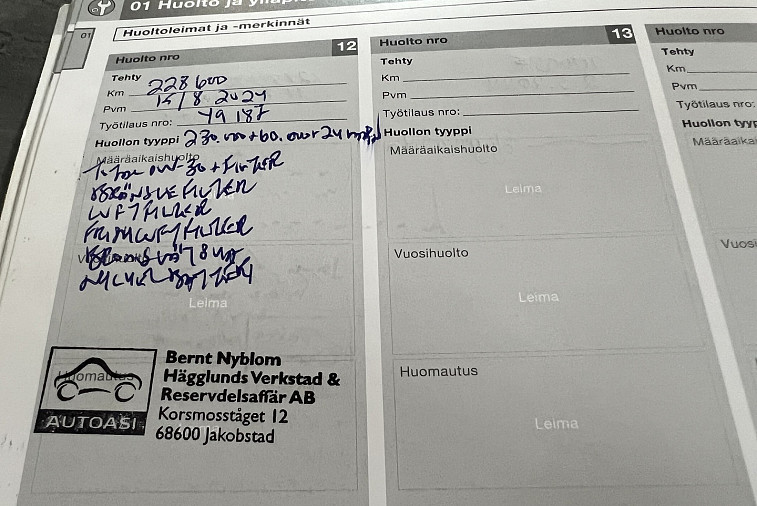 01 Huolto ja
01
Huoltoleimat ja -merkinnät
Huolto nro 12
Tehty
Km 228600
Pvm 15/8 2024
Työtilaus nro: 49187
Huollon tyyppi 230.000 + 60.000
Määräaikaishuolto
0W-30 + FILTER
BRÄNSLEFILTER
LUFTFILTER
FRISKLUFTFILTER
Leima
Huomautus
AUTOASI
Bernt Nyblom
Hägglunds Verkstad &
Reservdelsaffär AB
Korsmosståget 12
68600 Jakobstad
Huolto nro 13
Tehty
Km
Pvm
Työtilaus nro:
Huollon tyyppi
Määräaikaishuolto
Leima
Vuosihuolto
Leima
Huomautus
Leima
Huolto nro
Tehty
Km
Pvm
Työtilaus nro:
Huollon tyyp
Määräaika
Vuosi